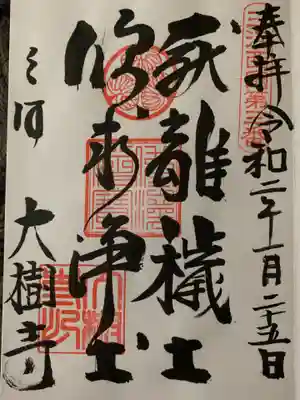 奉拝 令和二年一月二十五日
厭離穢土
欣求浄土
三河 大樹寺